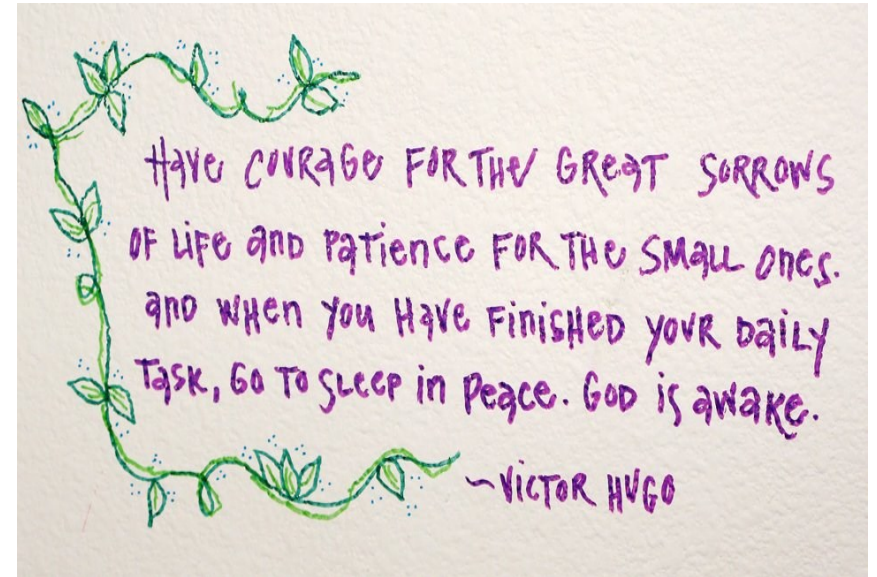 Have courage for the great sorrows
of life and patience for the small ones.
and when you have finished your daily
task, go to sleep in peace. God is awake.
~Victor Hugo